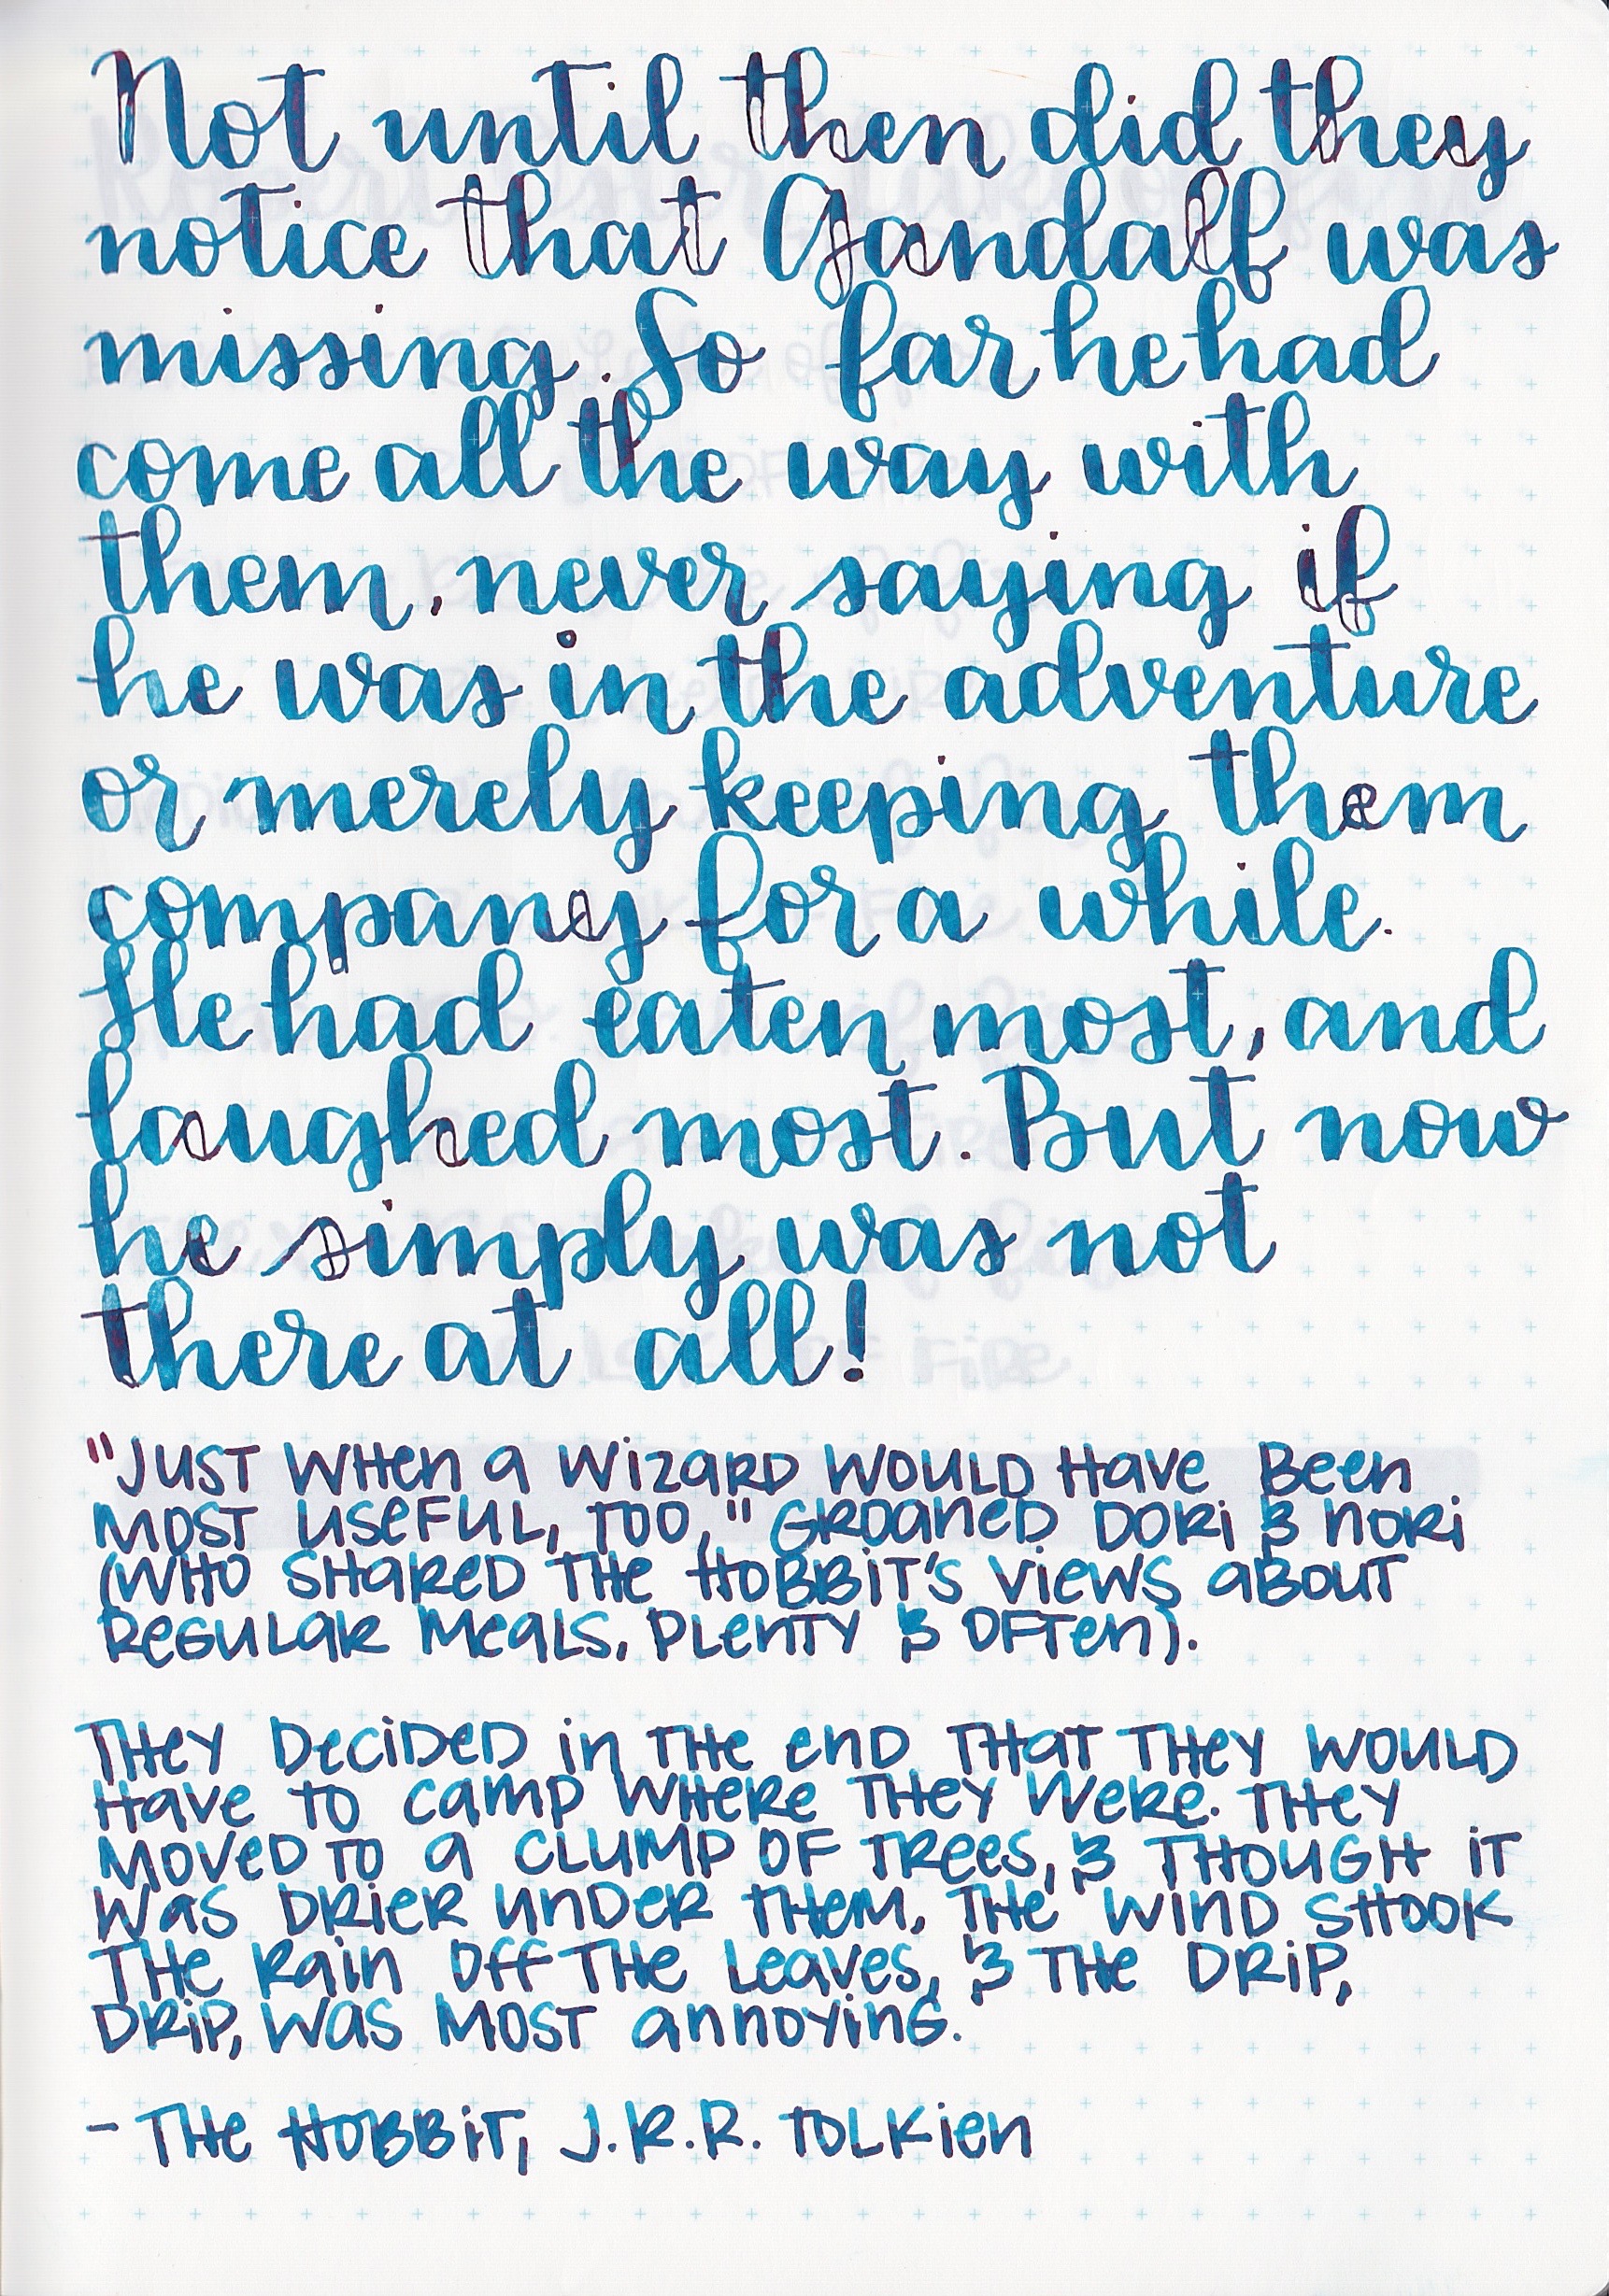 Not until then did they
notice that Gandalf was
missing. So far he had
come all the way with
them, never saying if
he was in the adventure
or merely keeping them
company for a while.
He had eaten most, and
laughed most. But now
he simply was not
there at all!
"Just when a wizard would have been
most useful, too," groaned Dori & Nori
(who shared the hobbit's views about
regular meals, plenty & often).
They decided in the end that they would
have to camp where they were. They
moved to a clump of trees, & though it
was drier under them, the wind shook
the rain off the leaves, & the drip,
drip, was most annoying.
- The Hobbit, J.R.R. Tolkien